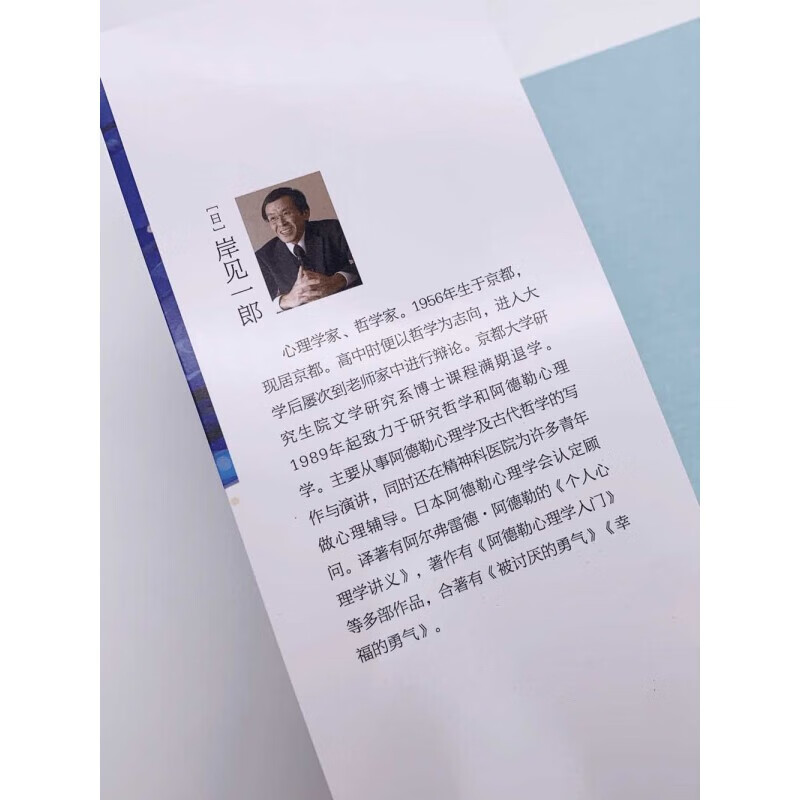 [日]岸见一郎
心理学家、哲学家。1956年生于京都，
现居京都。高中时便以哲学为志向，进入大
学后屡次到老师家中进行辩论。京都大学研
究生院文学研究系博士课程满期退学。
1989年起致力于研究哲学和阿德勒心理
学。主要从事阿德勒心理学及古代哲学的写
作与演讲，同时还在精神科医院为许多青年
做心理辅导。日本阿德勒心理学会认定顾
问。译著有阿尔弗雷德·阿德勒的《个人心
理学讲义》，著作有《阿德勒心理学入门》
等多部作品，合著有《被讨厌的勇气》《幸
福的勇气》。